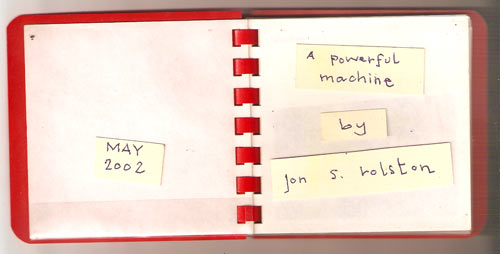 MAY
2002
A powerful
machine
by
jon s. rolston